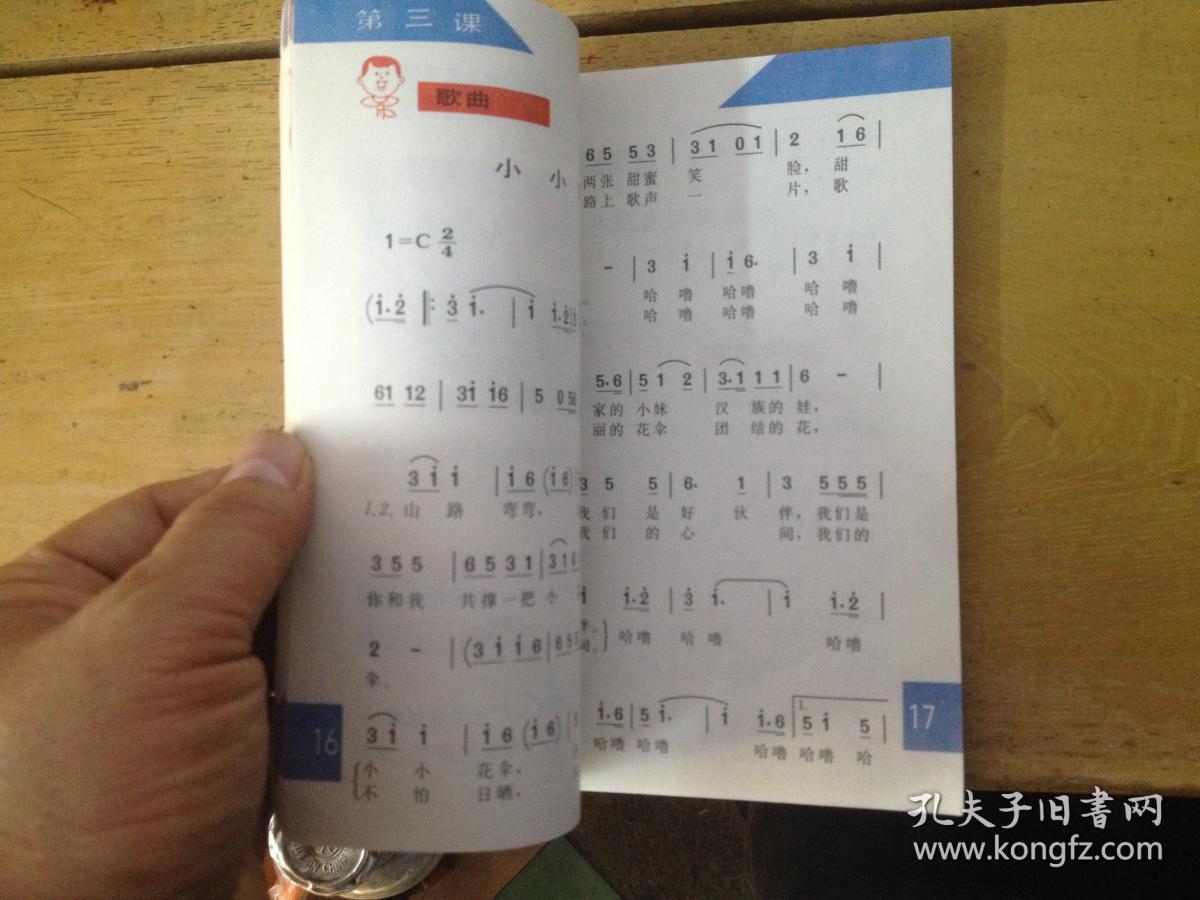 第三课
歌曲
小 小
1=C 2/4
(i·2̇ ‖: 3̇ i· | i i·2̇
61 12 | 3i i6 | 5 0 56
3 i i | i6 (i6)
1.2.山 路 弯弯，
355 | 65 31 | 31
你和我 共撑一把 小
2 - | (3i i6 | 65
伞。
3i i | i6 (i6) |
小 小 花伞，
不 怕 日晒，
16
65 53 | 31 01 | 2 16 |
两张 甜蜜 笑 脸，甜
路上 歌声 一 片，歌
- | 3 i | i6· | 3 i |
哈 噜 哈噜 哈 噜
哈 噜 哈噜 哈 噜
5·6 | 51 2 | 3·1 11 | 6 - |
家的 小妹 汉 族的 娃，
丽的 花伞 团 结的 花，
3 5 5 | 6· 1 | 3 555 |
我们 是 好 伙 伴，我们是
我们 的 心 间，我们的
i i·2̇ | 3̇ i· | i i·2̇ |
哈噜 哈 噜 哈噜
i·6 | 5 i· | i i·6 | 1. 5 i 5 |
哈噜 哈噜 哈噜 哈噜 哈
17
孔夫子旧书网
www.kongfz.com